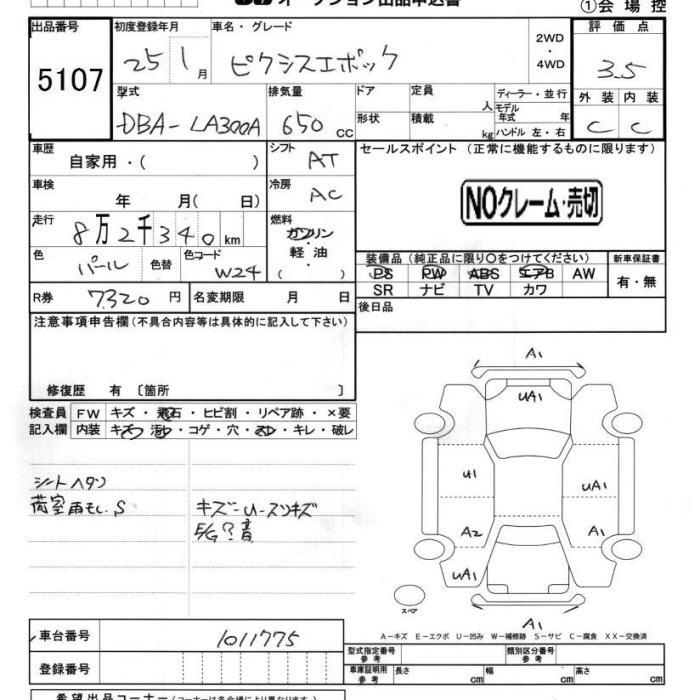 オークション出品申込書 ①会場控
出品番号 初度登録年月 車名・グレード 2WD ・ 4WD 評価点
5107 25 1月 ピクシスエポック 3.5
型式 排気量 ドア 定員 人 ディーラー・並行 外装 内装
DBA-LA300A 650 cc 形状 積載 kg モデル年式 年 ハンドル 左・右 C C
車歴 自家用・( ) シフト AT セールスポイント (正常に機能するものに限ります)
車検 年 月( 日) 冷房 AC NOクレーム・売切
走行 8万2千340km 燃料 ガソリン 軽油 ( )
色 パール 色替 色コード W24
装備品 (純正品に限り〇をつけてください) 新車保証書
PS PW ABS エアB AW 有・無
SR ナビ TV カワ
R券 7320円 名変期限 月 日 後日品
注意事項申告欄(不具合内容等は具体的に記入して下さい)
修復歴 有 〔箇所 〕
検査員 FW キズ・飛石・ヒビ割・リペア跡・×要
記入欄 内装 キズ・汚レ・コゲ・穴・スレ・キレ・破レ
シートヘタリ
荷室雨もし.S キズ=U-スリキズ
E/G?音
A1
UA1
U1 UA1
A2 A1
UA1
スペア
A1
A-キズ E-エクボ U-凹み W-補修跡 S-サビ C-腐食 XX-交換済
車台番号 1011775
型式指定番号 参考 類別区分番号 参考
登録番号 車庫証明用 参考 長さ cm 幅 cm 高さ cm
希望出品コーナー(コーナーは各会場により異なります)